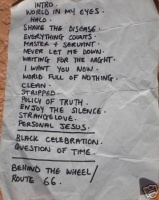 INTRO.
WORLD IN MY EYES.
HALO.
SHAKE THE DISEASE.
EVERYTHING COUNTS.
MASTER + SERVANT.
NEVER LET ME DOWN.
WAITING FOR THE NIGHT.
I WANT YOU NOW.
WORLD FULL OF NOTHING.
CLEAN.
STRIPPED.
POLICY OF TRUTH.
ENJOY THE SILENCE.
STRANGELOVE.
PERSONAL JESUS.
BLACK CELEBRATION.
QUESTION OF TIME.
BEHIND THE WHEEL/
ROUTE 66.